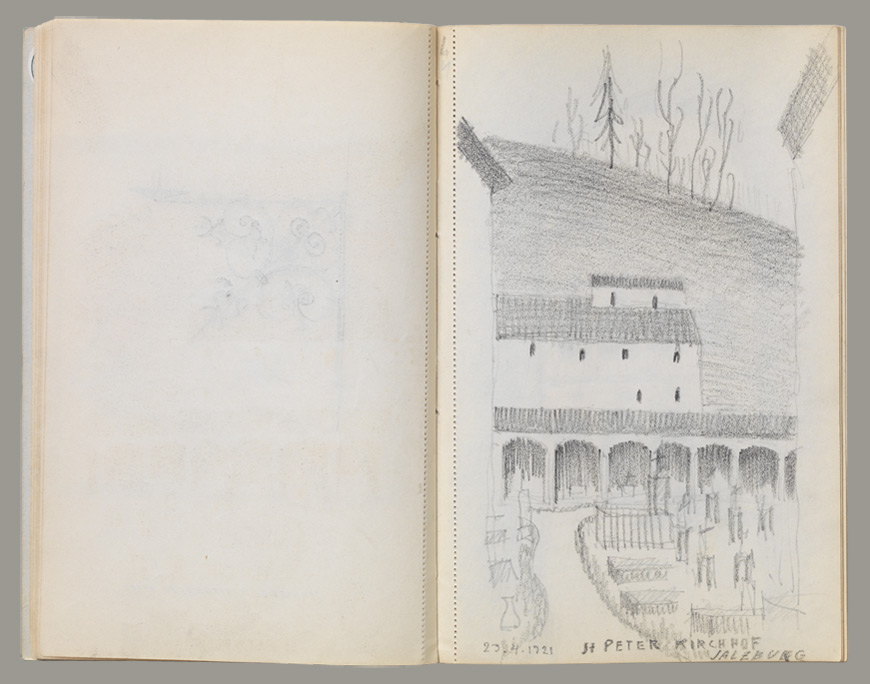 23.4.1921 St PETER KIRCHHOF
SALZBURG